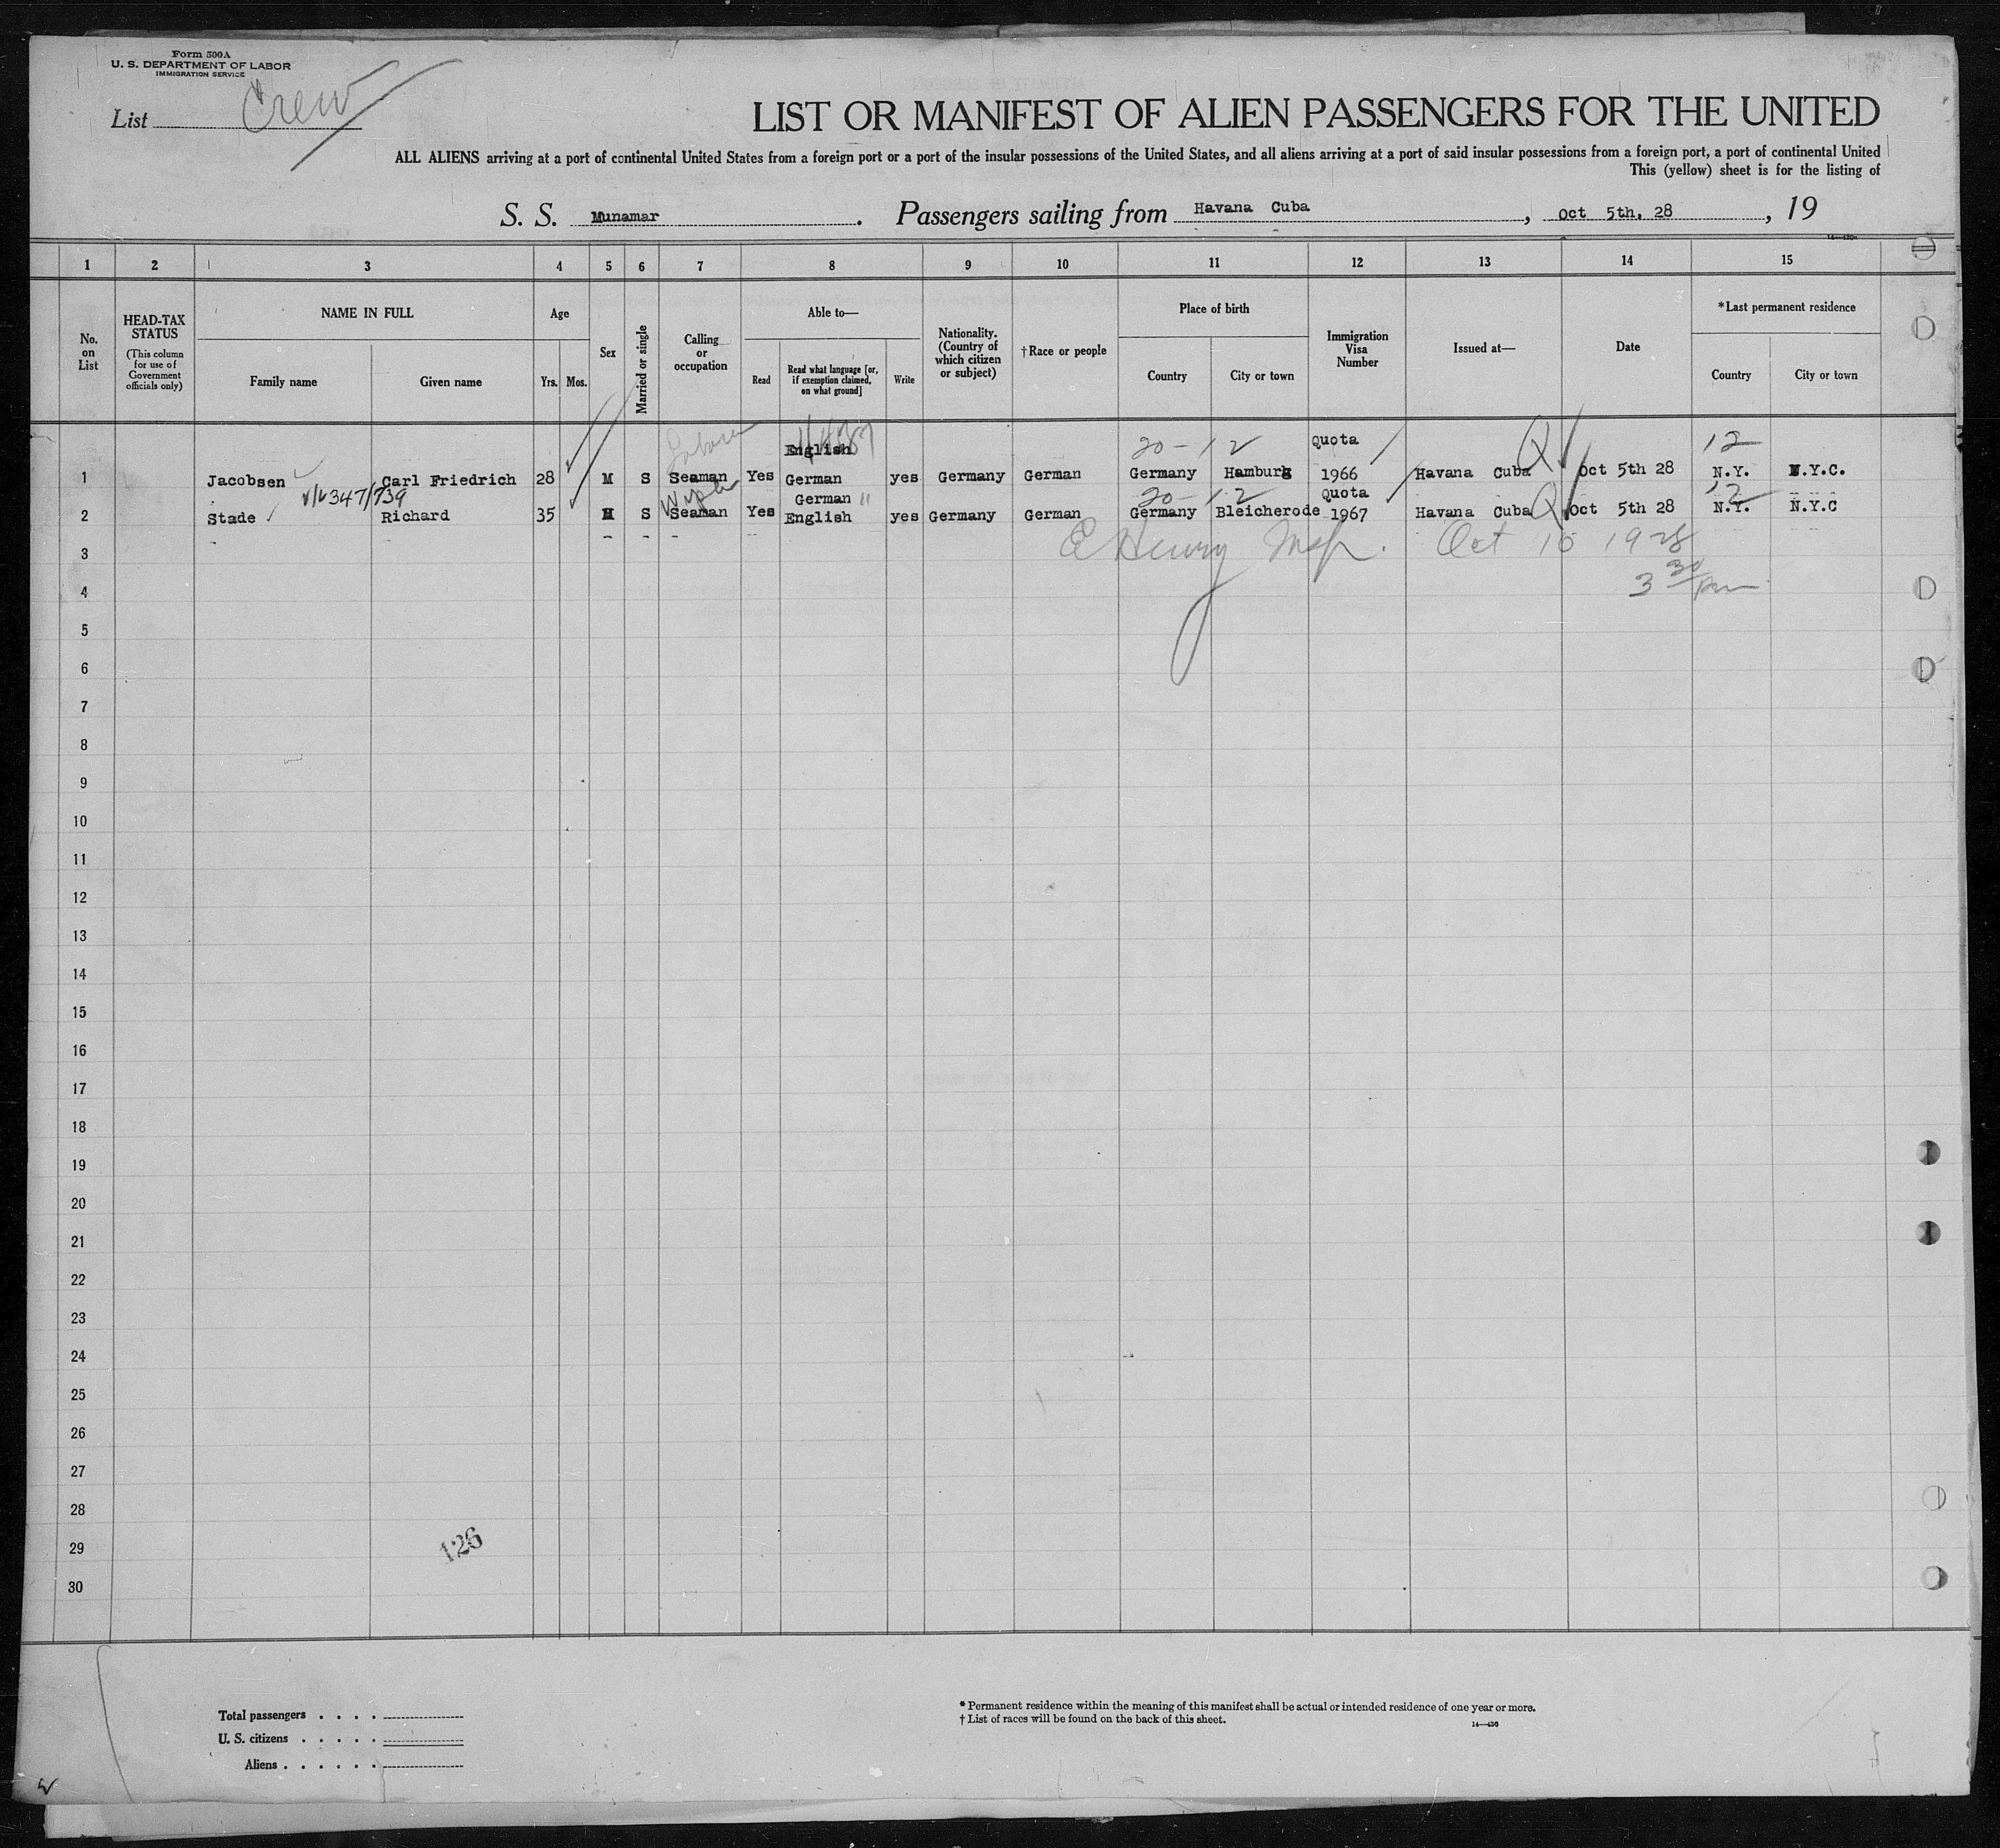 Form 500A
U. S. DEPARTMENT OF LABOR
IMMIGRATION SERVICE
List Crew
LIST OR MANIFEST OF ALIEN PASSENGERS FOR THE UNITED
ALL ALIENS arriving at a port of continental United States from a foreign port or a port of the insular possessions of the United States, and all aliens arriving at a port of said insular possessions from a foreign port, a port of continental United
This (yellow) sheet is for the listing of
S. S. Munamar. Passengers sailing from Havana Cuba, Oct 5th, 28, 19
1 2 3 4 5 6 7 8 9 10 11 12 13 14 15
No. on List
HEAD-TAX STATUS
(This column for use of Government officials only)
NAME IN FULL
Family name
Given name
Age
Yrs. Mos.
Sex
Married or single
Calling or occupation
Able to—
Read
Read what language [or, if exemption claimed, on what ground]
Write
Nationality. (Country of which citizen or subject)
†Race or people
Place of birth
Country
City or town
Immigration Visa Number
Issued at—
Date
*Last permanent residence
Country
City or town
Laborer English 20-12 Quota Q 12
1 Jacobsen Carl Friedrich 28 M S Seaman Yes German yes Germany German Germany Hamburg 1966 Havana Cuba Oct 5th 28 N.Y. N.Y.C.
347/739 German " 20-12 Quota Q 12
2 Stade Richard 35 M S Seaman Yes English yes Germany German Germany Bleicherode 1967 Havana Cuba Oct 5th 28 N.Y. N.Y.C
3 E Henry Insp. Oct 10 1928
4 3 30 pm
5
6
7
8
9
10
11
12
13
14
15
16
17
18
19
20
21
22
23
24
25
26
27
28
29 126
30
Total passengers . . . .
U. S. citizens . . . . .
Aliens . . . . . .
* Permanent residence within the meaning of this manifest shall be actual or intended residence of one year or more.
† List of races will be found on the back of this sheet.
14—430